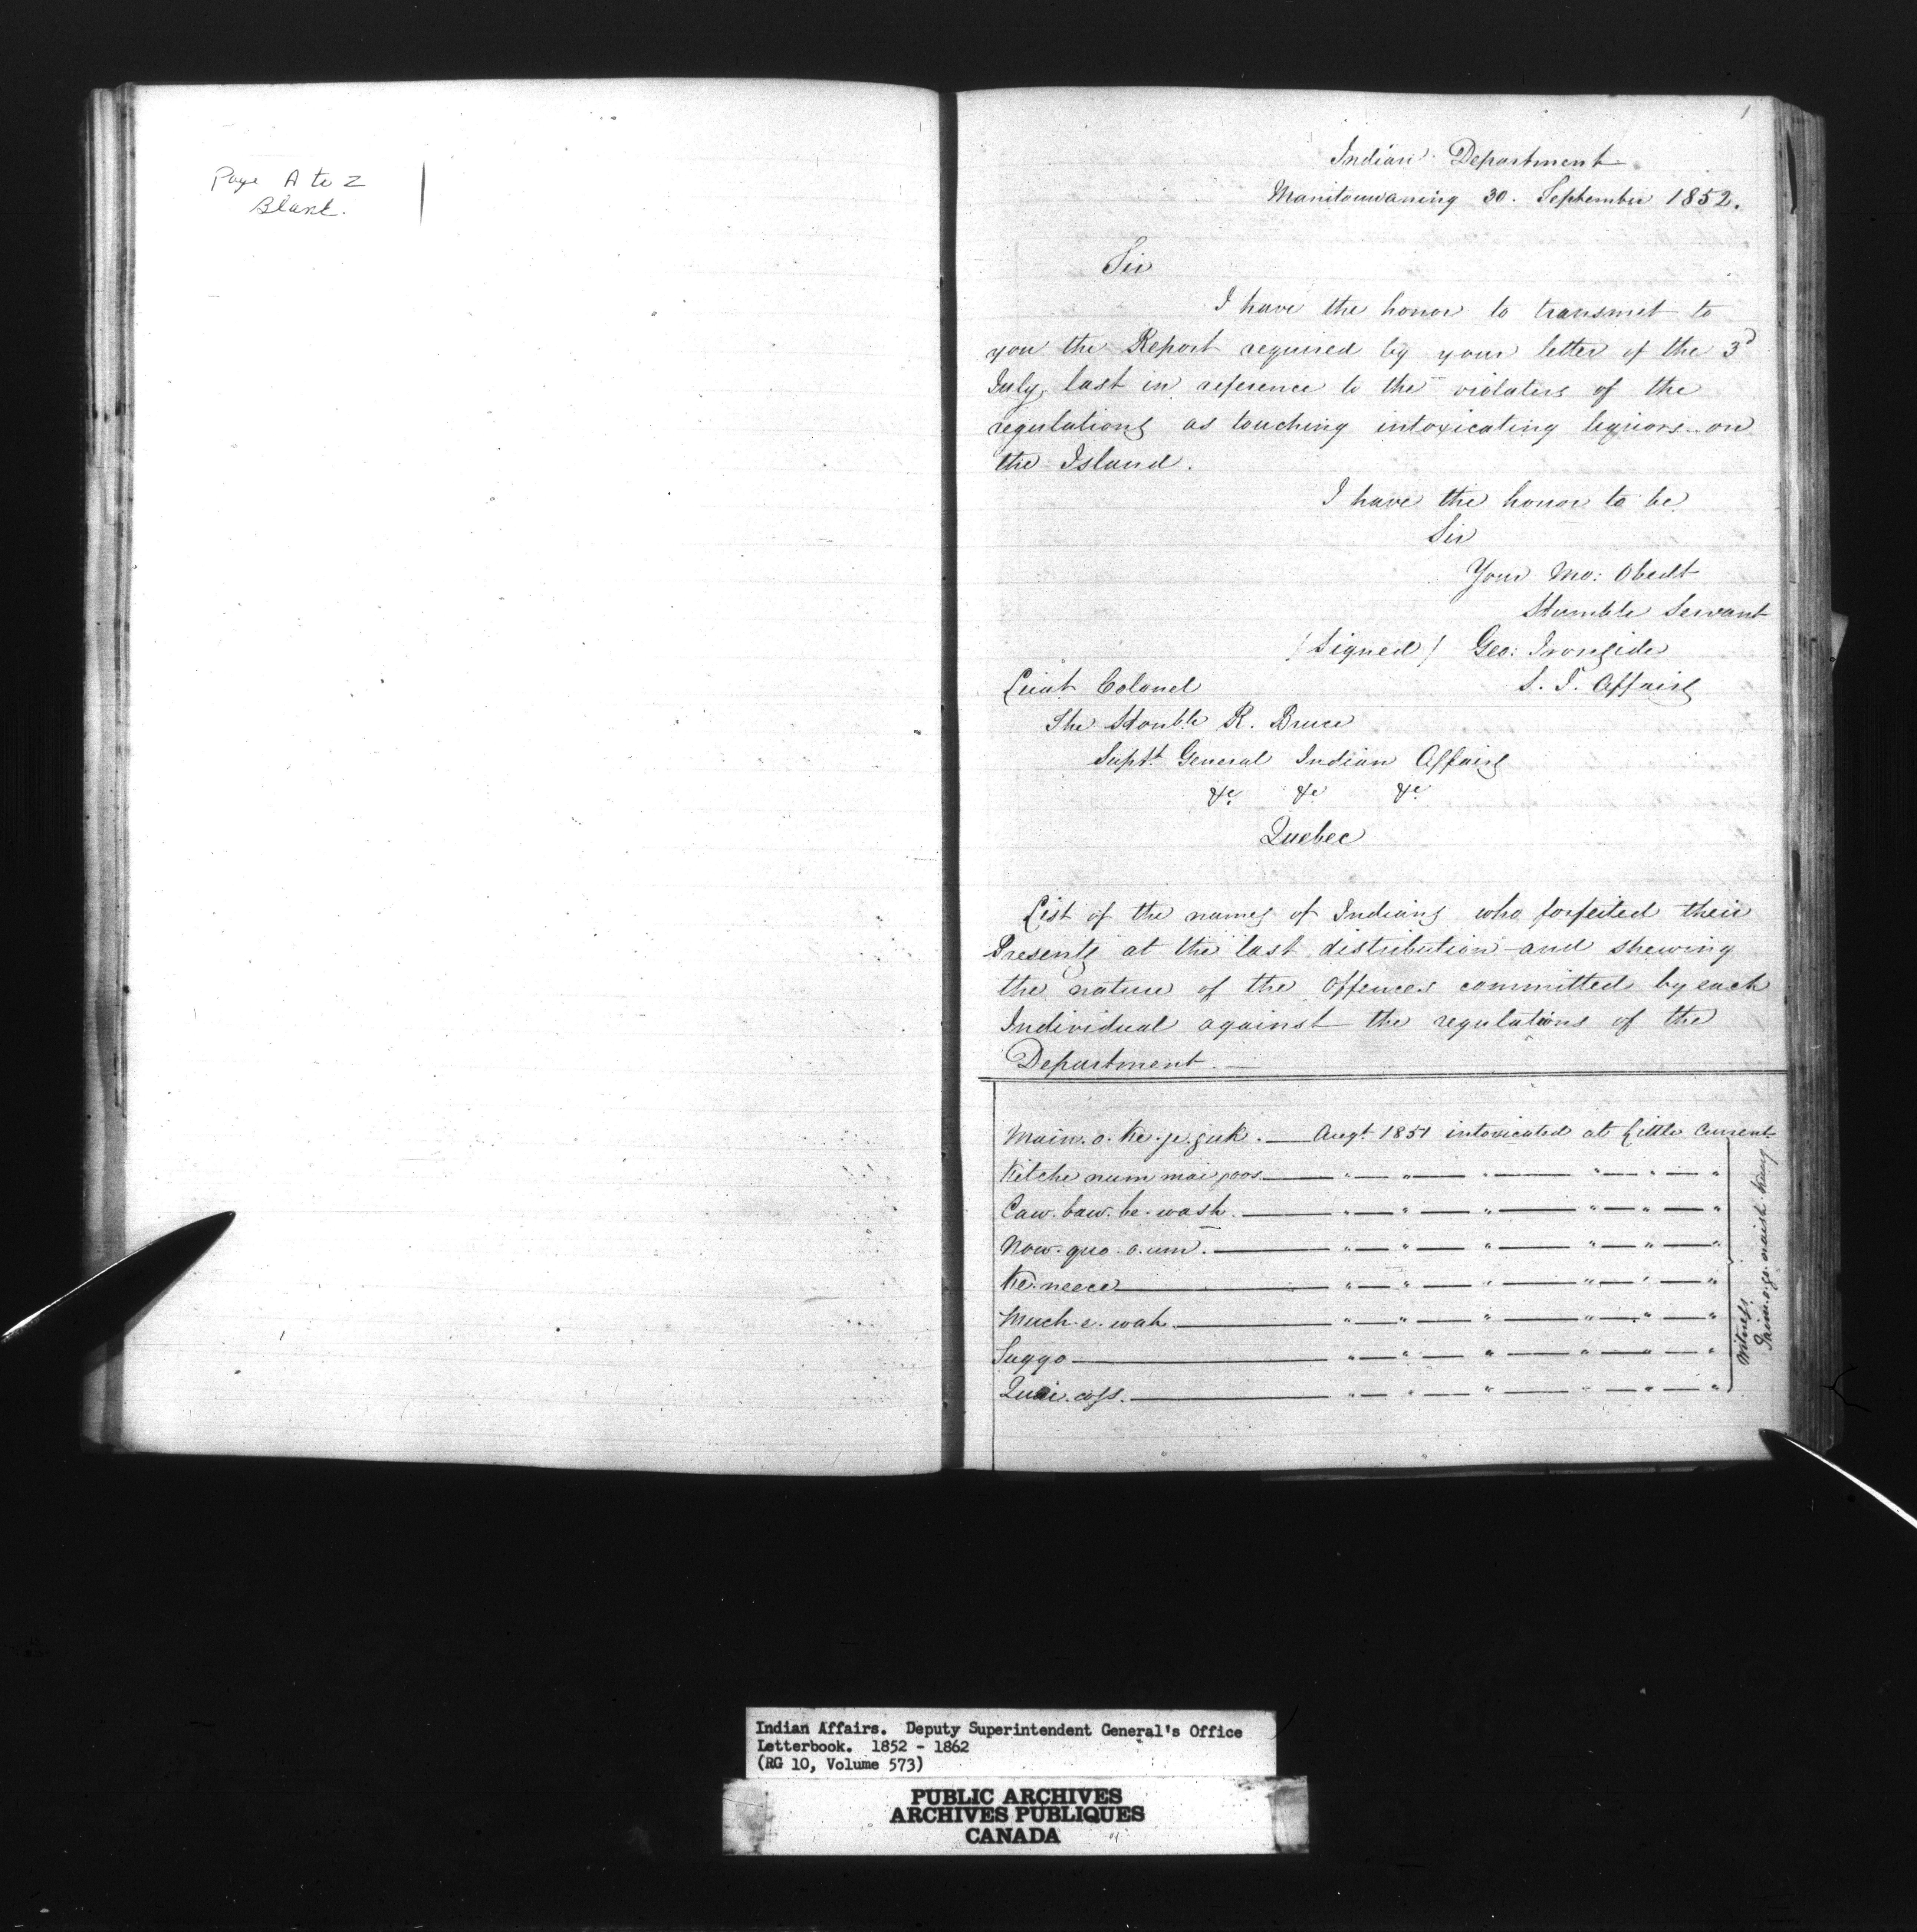 Page A to Z
Blank.
1
Indian Department
Manitouwaning 30. September 1852.
Sir
I have the honor to transmit to
you the Report required by your letter of the 3d
July last in reference to the violaters of the
regulations as touching intoxicating liquors on
the Island.
I have the honor to be
Sir
Your Mo: Obedt
Humble Servant
(Signed) Geo: Ironside
S. I. Affairs
Lieut Colonel
The Honble R. Bruce
Supt. General Indian Affairs
&c &c &c
Quebec
List of the names of Indians who forfeited their
Presents at the last distribution and shewing
the nature of the Offences committed by each
Individual against the regulations of the
Department. —
Main.o.ke.je.guk. — Augt. 1851 intoxicated at Little Current
Kitche num mai goos — " — " — " — " — " — "
Caw.baw.be.wash. — " — " — " — " — " — "
Now.quo.o.um. — " — " — " — " — " — "
Ke.neece — " — " — " — " — " — "
Much.e.wah — " — " — " — " — " — "
Suggo — " — " — " — " — " — "
Quai.coss. — " — " — " — " — " — "
Witness
Indian Affairs. Deputy Superintendent General's Office
Letterbook. 1852 - 1862
(RG 10, Volume 573)
PUBLIC ARCHIVES
ARCHIVES PUBLIQUES
CANADA